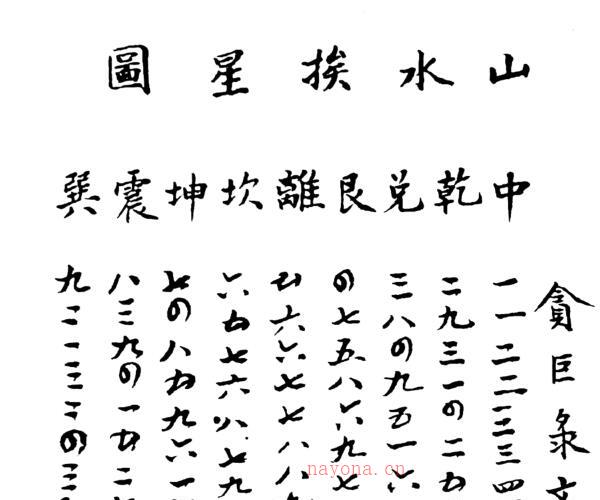 山水挨星圖
貪巨彔文
中一一二二三三四
乾二九三一四二五
兌三八四九五一六
艮四七五八六九七
離五六六七七八八
坎六五七六八七九
坤七四八五九六一
震八三九四一五二
巽九二一三二四三
nayona.cn